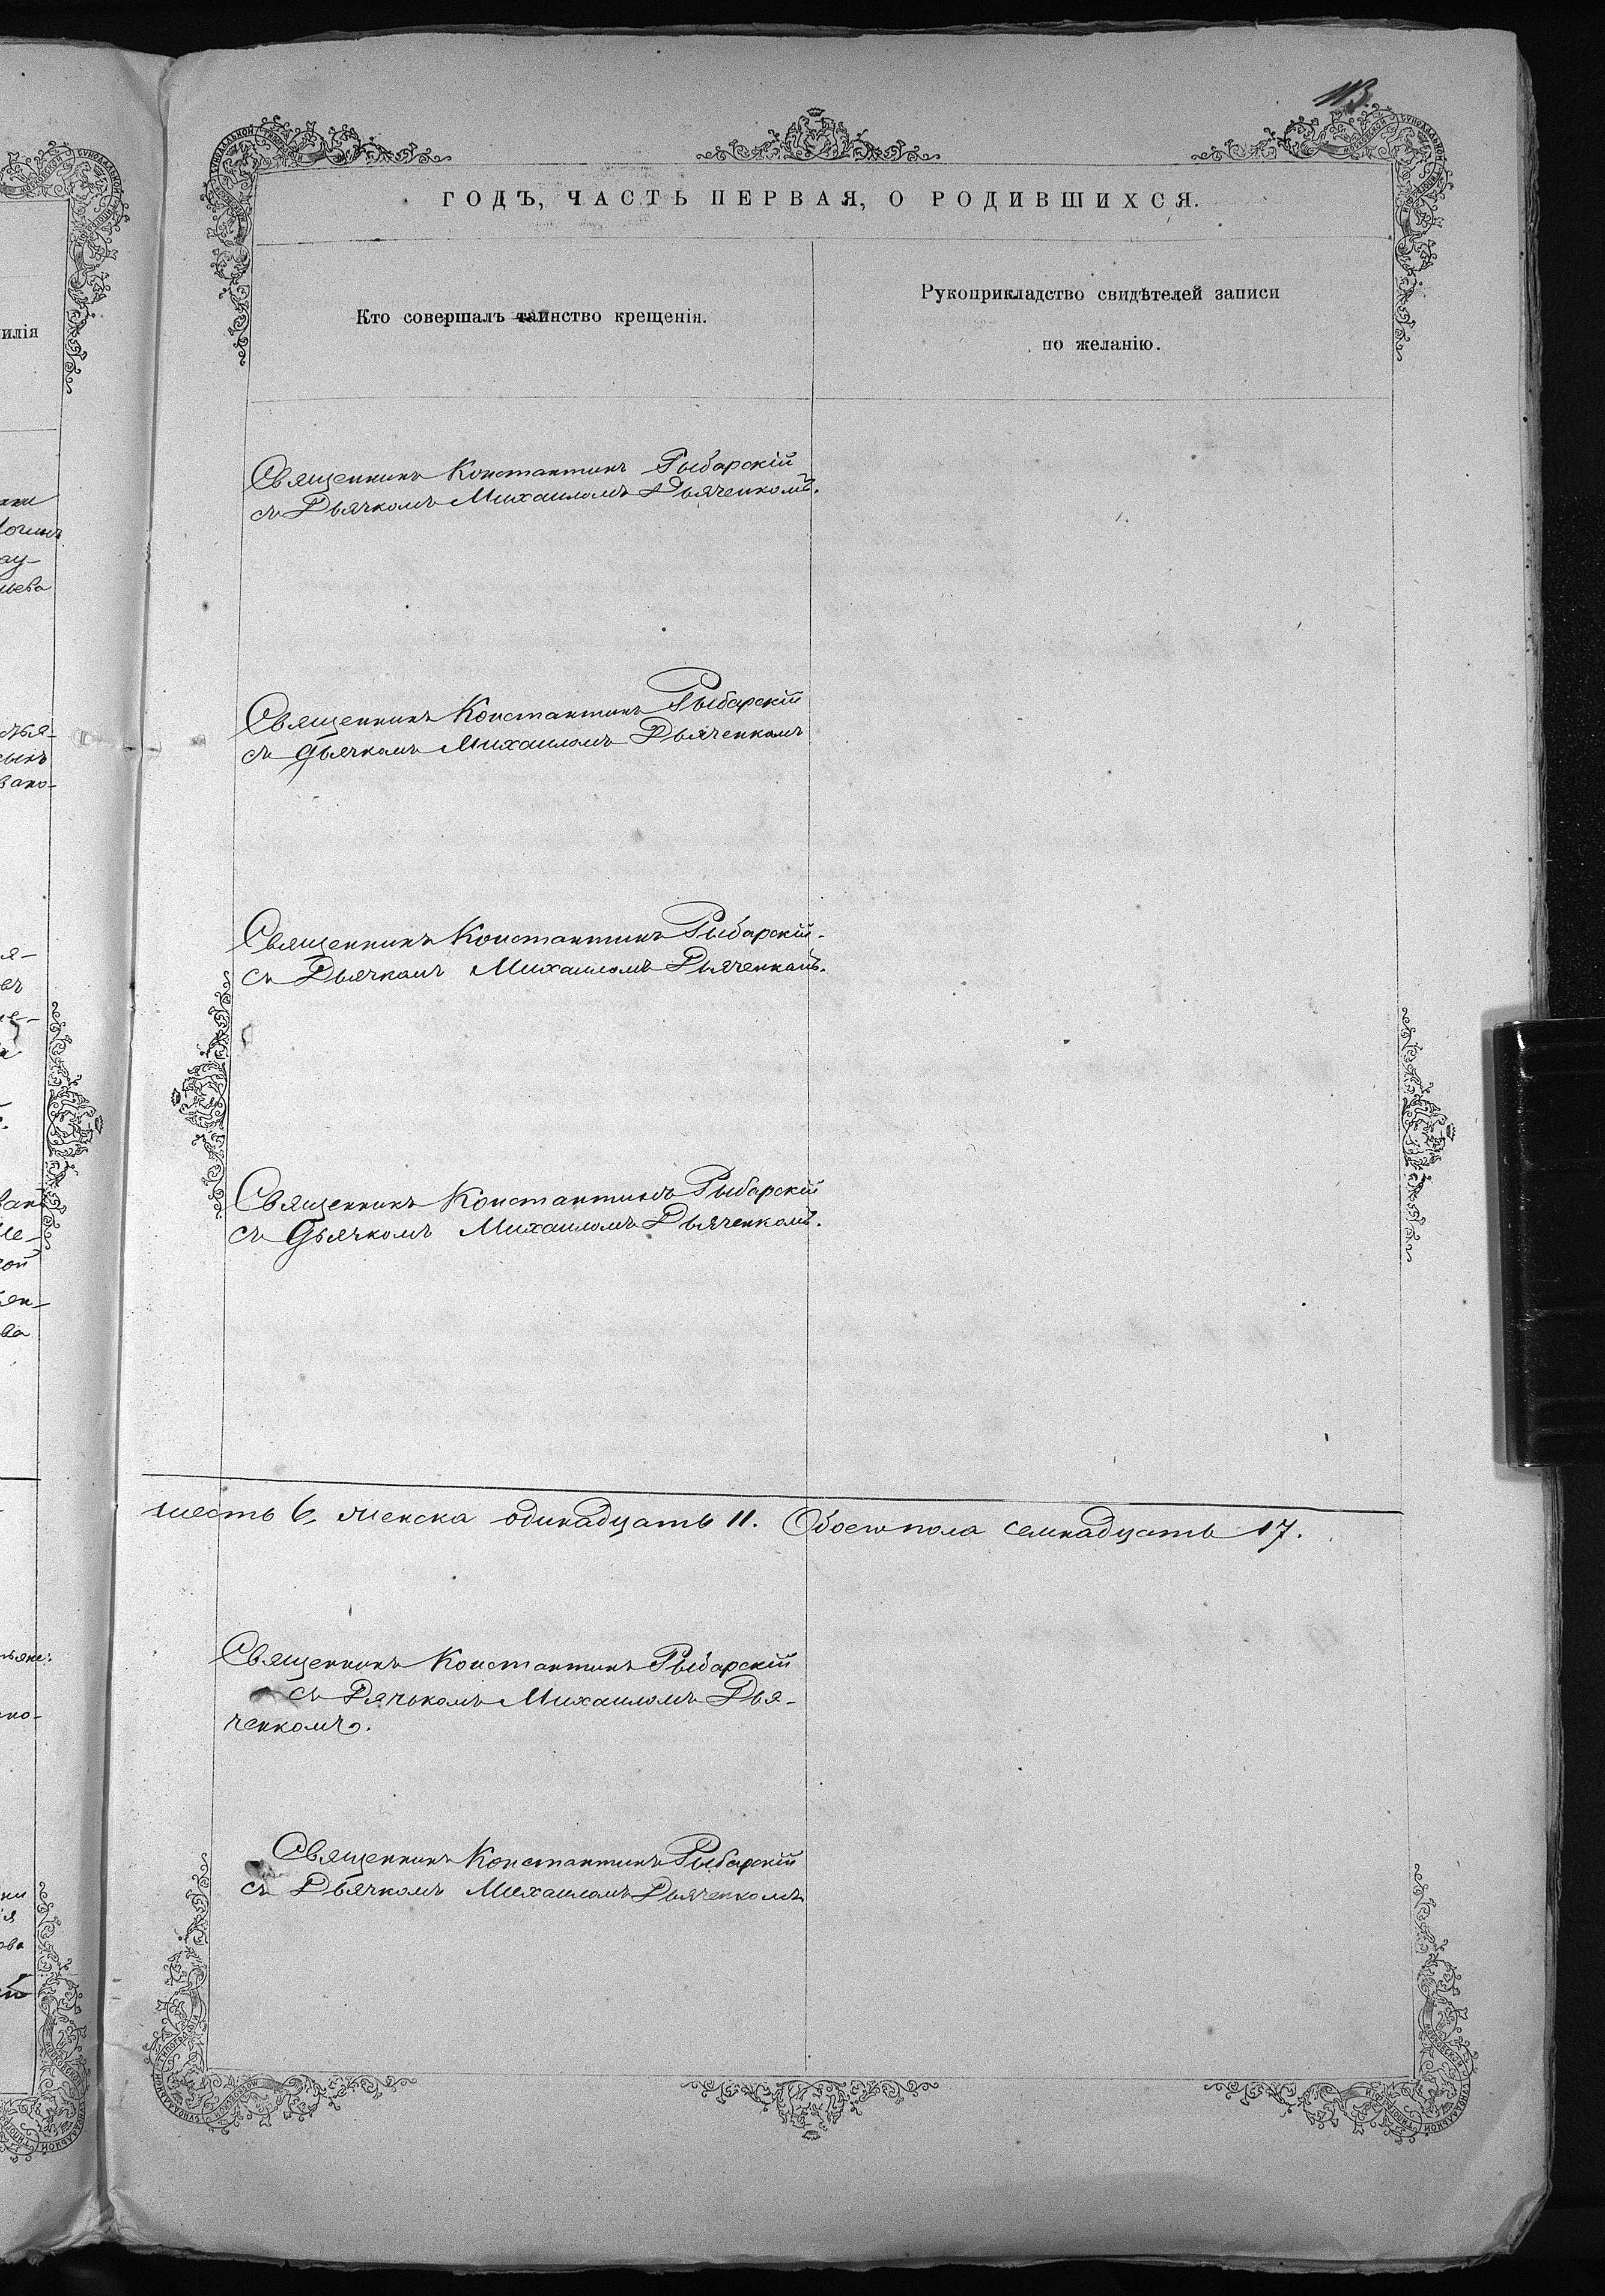 113.
ГОДЪ, ЧАСТЬ ПЕРВАЯ, О РОДИВШИХСЯ.
Кто совершалъ таинство крещенія.
Рукоприкладство свидѣтелей записи
по желанію.
Священникъ Константинъ Рыбарскій
съ Дьячкомъ Михаиломъ Дьяченкомъ.
Священникъ Константинъ Рыбарскій
съ Дьячкомъ Михаиломъ Дьяченкомъ
Священникъ Константинъ Рыбарскій
съ Дьячкомъ Михаиломъ Дьяченкомъ.
Священникъ Константинъ Рыбарскій
съ Дьячкомъ Михаиломъ Дьяченкомъ.
шесть 6, женска одинадцать 11. Обоего пола семнадцать 17.
Священникъ Константинъ Рыбарскій
съ Дячькомъ Михаиломъ Дья-
ченкомъ.
Священникъ Константинъ Рыбарскій
съ Дьячкомъ Михаиломъ Дьяченкомъ